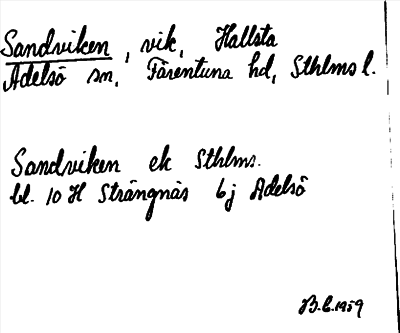 Sandviken, vik, Hallsta
Adelsö sn, Färentuna hd, Sthlms l.
Sandviken ek Sthlms.
bl. 10 H Strängnäs 6j Adelsö
B.C. 1959